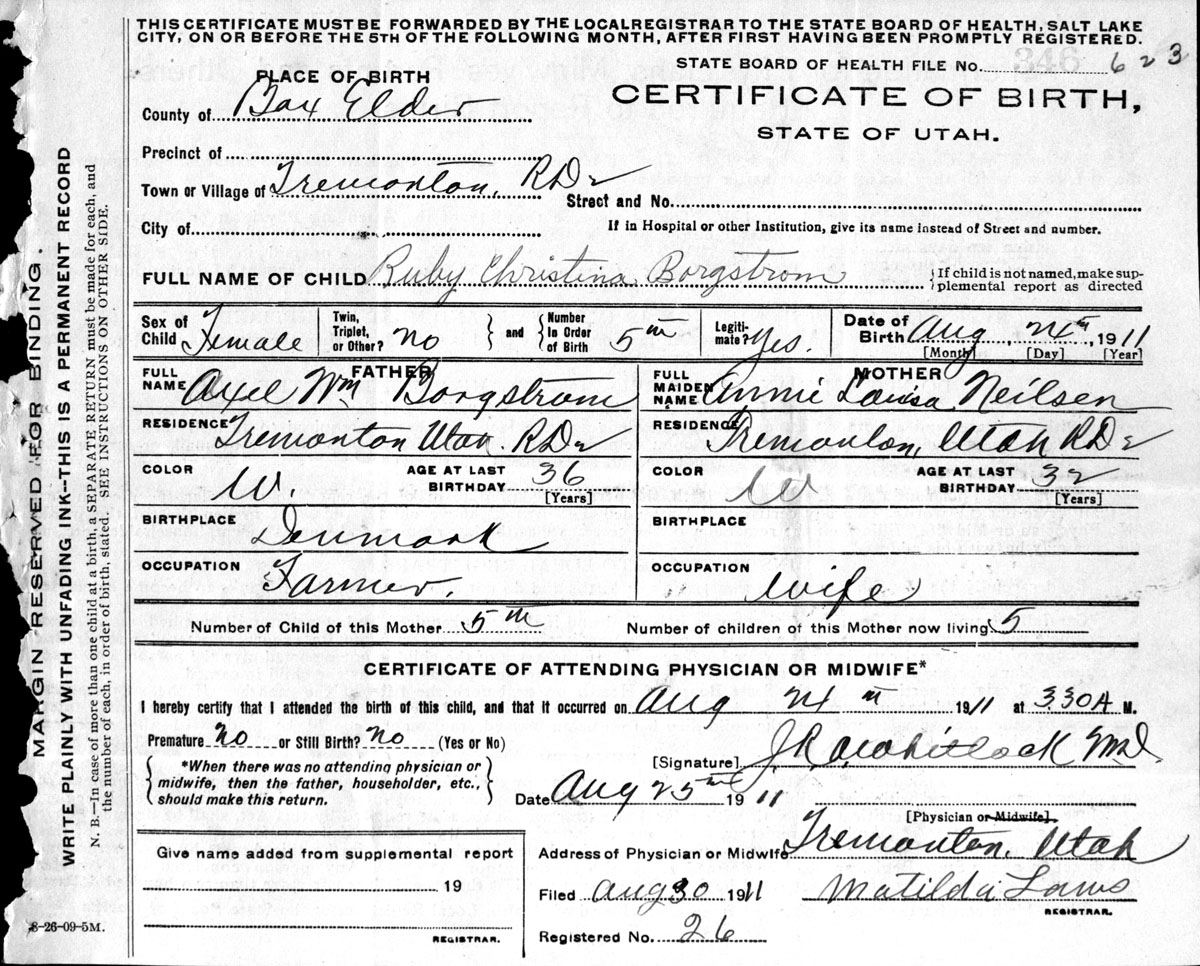 THIS CERTIFICATE MUST BE FORWARDED BY THE LOCALREGISTRAR TO THE STATE BOARD OF HEALTH, SALT LAKE
CITY, ON OR BEFORE THE 5TH OF THE FOLLOWING MONTH, AFTER FIRST HAVING BEEN PROMPTLY REGISTERED.
STATE BOARD OF HEALTH FILE No. 623
PLACE OF BIRTH
CERTIFICATE OF BIRTH,
County of Box Elder
STATE OF UTAH.
Precinct of
Town or Village of Tremonton, RD2
Street and No.
City of
If in Hospital or other Institution, give its name instead of Street and number.
FULL NAME OF CHILD Ruby Christina Borgstrom
{If child is not named, make sup-
plemental report as directed
Sex of Child Female
Twin, Triplet, or Other? No } and { Number in Order of Birth 5th
Legiti-mate? Yes.
Date of Birth Aug 24th, 1911
[Month] [Day] [Year]
FATHER
FULL NAME Axel Wm Borgstrom
RESIDENCE Tremonton Utah. RD2
COLOR W.
AGE AT LAST BIRTHDAY 36
[Years]
BIRTHPLACE Denmark
OCCUPATION Farmer.
MOTHER
FULL MAIDEN NAME Annie Louisa Neilsen
RESIDENCE Tremonton, Utah RD2
COLOR W
AGE AT LAST BIRTHDAY 32
[Years]
BIRTHPLACE
OCCUPATION wife
Number of Child of this Mother 5th
Number of children of this Mother now living 5
CERTIFICATE OF ATTENDING PHYSICIAN OR MIDWIFE*
I hereby certify that I attended the birth of this child, and that it occurred on Aug 24th 1911 at 330A M.
Premature No or Still Birth? No (Yes or No)
[Signature] Whitlock MD.
{*When there was no attending physician or
midwife, then the father, householder, etc.,
should make this return.}
Date Aug 25th 1911
[Physician or Midwife]
Address of Physician or Midwife Tremonton, Utah
Give name added from supplemental report
19
REGISTRAR.
Filed Aug 30 1911
Matilda
REGISTRAR.
Registered No. 26
8-26-09-5M.
MARGIN RESERVED FOR BINDING.
WRITE PLAINLY WITH UNFADING INK--THIS IS A PERMANENT RECORD
N. B.—In case of more than one child at a birth, a SEPARATE RETURN must be made for each, and
the number of each, in order of birth, stated. SEE INSTRUCTIONS ON OTHER SIDE.